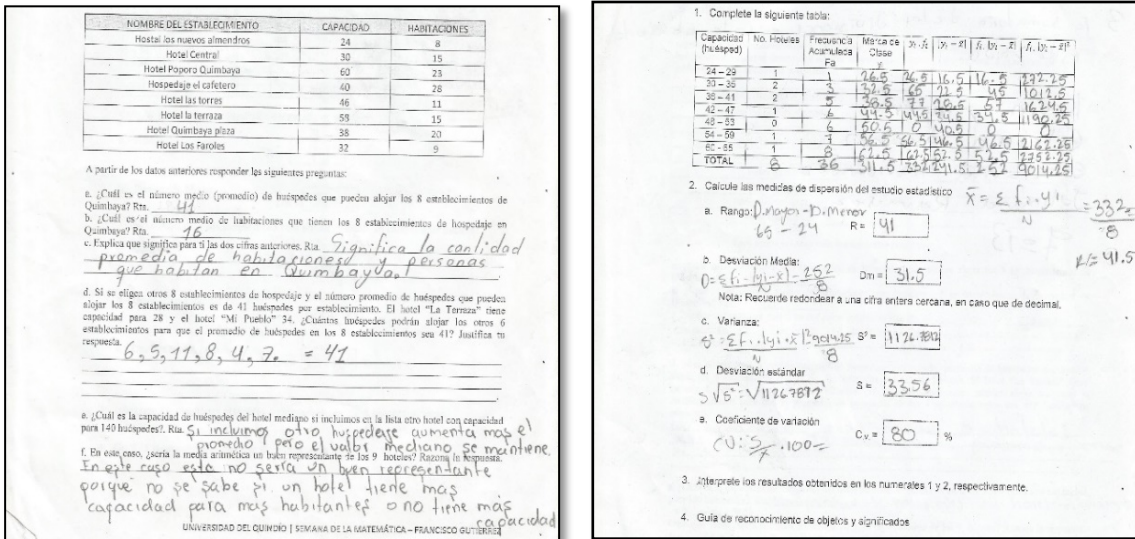 NOMBRE DEL ESTABLECIMIENTO CAPACIDAD HABITACIONES
Hostal los nuevos almendros 24 8
Hotel Central 30 15
Hotel Poporo Quimbaya 60 23
Hospedaje el cafetero 40 28
Hotel las torres 46 11
Hotel la terraza 59 15
Hotel Quimbaya plaza 38 20
Hotel Los Faroles 32 9
A partir de los datos anteriores responder las siguientes preguntas:
a. ¿Cuál es el número medio (promedio) de huéspedes que pueden alojar los 8 establecimientos de
Quimbaya? Rta. 41
b. ¿Cuál es el número medio de habitaciones que tienen los 8 establecimientos de hospedaje en
Quimbaya? Rta. 16
c. Explica que significa para ti las dos cifras anteriores. Rta. Significa la cantidad
promedia de habitaciones y personas
que habitan en Quimbaya.
d. Si se eligen otros 8 establecimientos de hospedaje y el número promedio de huéspedes que pueden
alojar los 8 establecimientos es de 41 huéspedes por establecimiento. El hotel "La Terraza" tiene
capacidad para 28 y el hotel "Mi Pueblo" 34. ¿Cuántos huéspedes podrán alojar los otros 6
establecimientos para que el promedio de huéspedes en los 8 establecimientos sea 41? Justifica tu
respuesta.
6, 5, 11, 8, 4, 7. = 41
e. ¿Cuál es la capacidad de huéspedes del hotel mediano si incluimos en la lista otro hotel con capacidad
para 140 huéspedes?. Rta. Si incluimos otro hospedaje aumenta mas el
promedio pero el valor mediano se mantiene.
f. En este caso, ¿sería la media aritmética un buen representante de los 9 hoteles? Razona tu respuesta.
En este caso esta no sería un buen representante
porque no se sabe si un hotel tiene mas
capacidad para mas habitantes o no tiene más
capacidad
UNIVERSIDAD DEL QUINDÍO | SEMANA DE LA MATEMÁTICA – FRANCISCO GUTIERREZ
1. Complete la siguiente tabla:
Capacidad (huésped) No. Hoteles Frecuencia Acumulada Fa Marca de Clase y yᵢ . fᵢ |yᵢ – x̄| fᵢ. |yᵢ – x̄| fᵢ. |yᵢ – x̄|²
24 – 29 1 1 26.5 26.5 16.5 16.5 272.25
30 – 35 2 3 32.5 65 22.5 45 1012.5
36 – 41 2 5 38.5 77 28.5 57 1624.5
42 – 47 1 6 44.5 44.5 34.5 34.5 1190.25
48 – 53 0 6 50.5 0 40.5 0 0
54 – 59 1 7 56.5 56.5 46.5 46.5 2162.25
60 - 65 1 8 62.5 62.5 52.5 52.5 2752.25
TOTAL 8 36 311.5 332 241.5 252 9014.25
2. Calcule las medidas de dispersión del estudio estadístico
x̄ = Σ fᵢ . yᵢ / N = 332 / 8
x̄ = 41.5
a. Rango: D. Mayor - D. Menor
65 - 24 R = 41
b. Desviación Media:
D = Σ fᵢ - |yᵢ - x̄| - 252 / 8 Dm = 31.5
Nota: Recuerde redondear a una cifra entera cercana, en caso que de decimal.
c. Varianza:
S² = Σ Fᵢ . |yᵢ - x̄|² / N = 9014.25 / 8 S² = 1126.7812
d. Desviación estándar
S √S² = √11267812 S = 33.56
e. Coeficiente de variación
CV: S/x̄ . 100 = Cv = 80 %
3. Interprete los resultados obtenidos en los numerales 1 y 2, respectivamente.
4. Guía de reconocimiento de objetos y significados